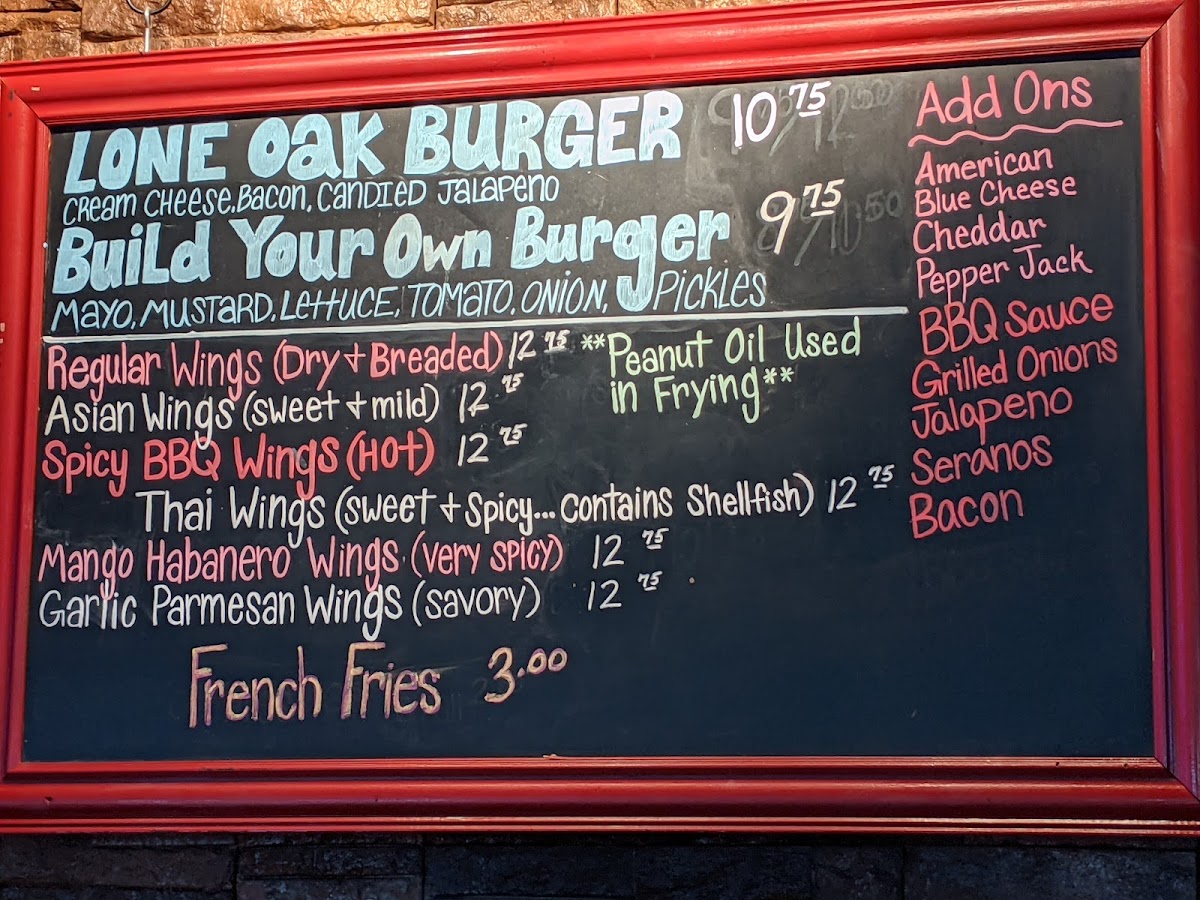 LONE Oak BURGER 10 75
CREAM CHEESE, BACON, CANDIED JALAPENO
Build Your Own Burger 9 75
MAYO, MUSTARD, LETTUCE, TOMATO, ONION, PICKLES
Regular Wings (Dry + Breaded) 12 75
Asian Wings (sweet + mild) 12 75
Spicy BBQ Wings (HOT) 12 75
Thai Wings (sweet + Spicy... contains Shellfish) 12 75
Mango Habanero Wings (very spicy) 12 75
Garlic Parmesan Wings (savory) 12 75
French Fries 3.00
**Peanut Oil Used
in Frying**
Add Ons
American
Blue Cheese
Cheddar
Pepper Jack
BBQ Sauce
Grilled Onions
Jalapeno
Seranos
Bacon